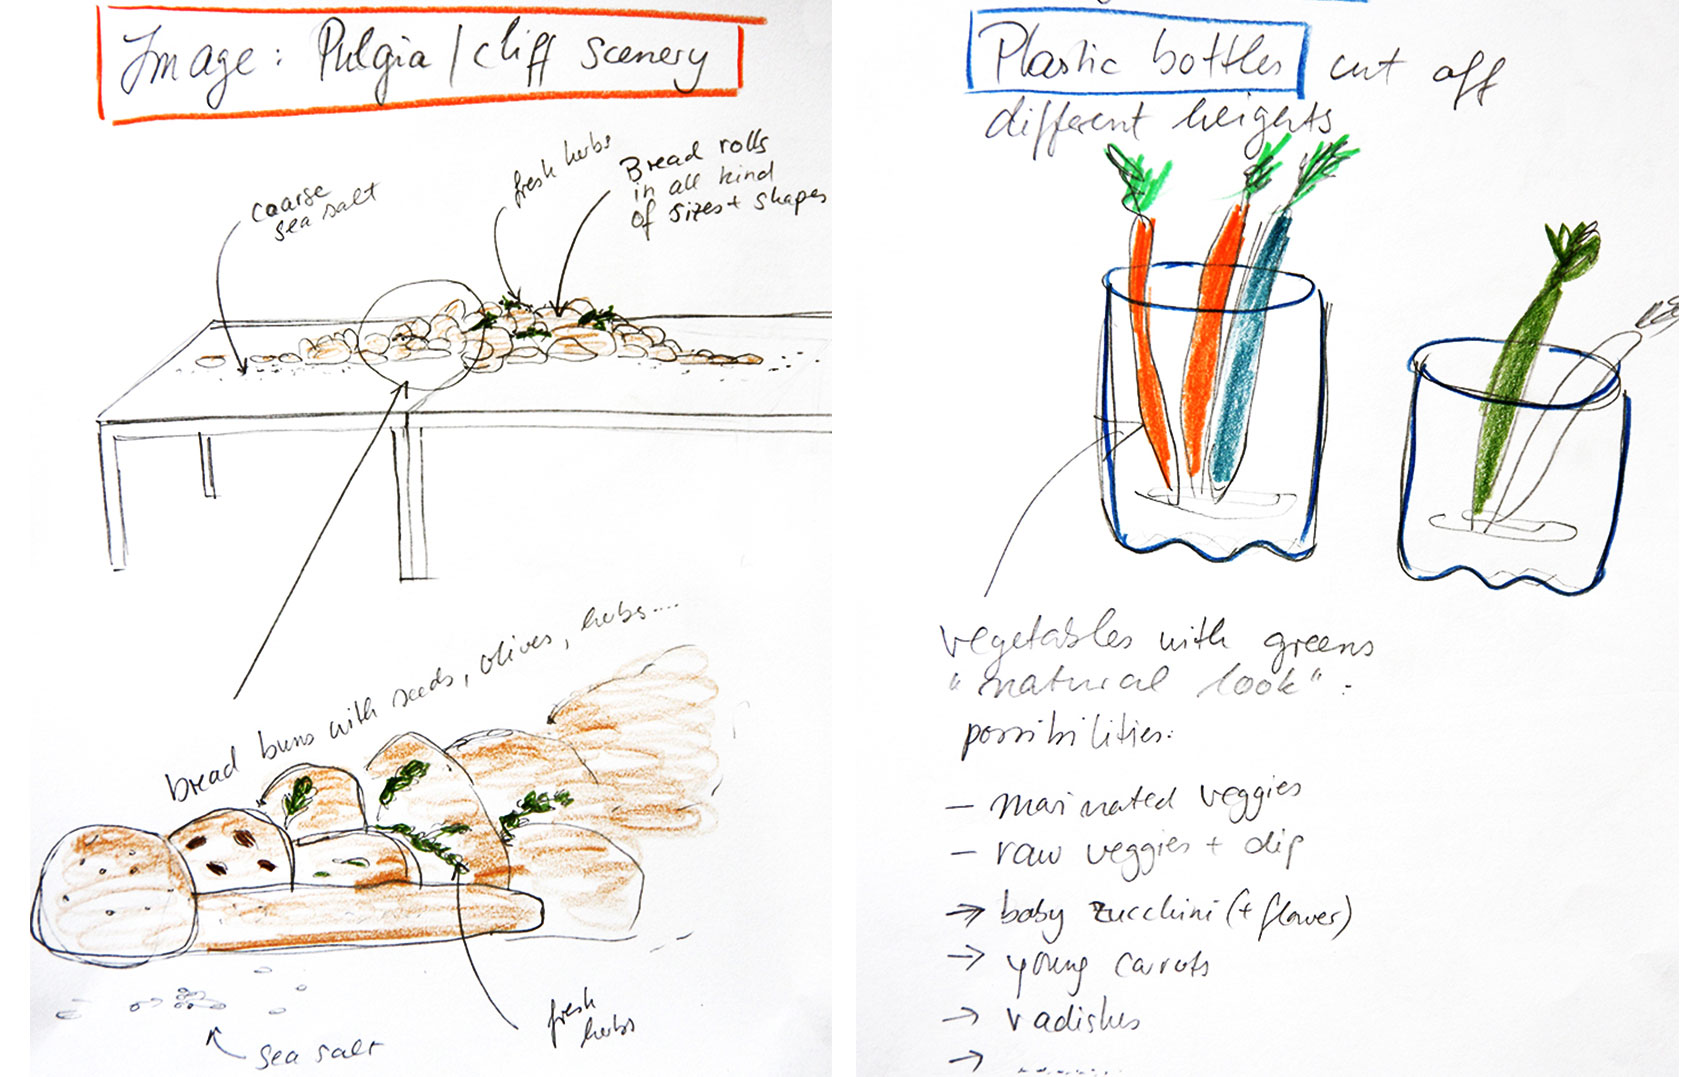 Image: Pulgia / cliff scenery
coarse
sea salt
fresh herbs
Bread rolls
in all kind
of sizes + shapes
bread buns with seeds, olives, herbs....
fresh
herbs
sea salt
Plastic bottles cut off
different heights
vegetables with greens
"natural look".
possibilities:
– marinated veggies
– raw veggies + dip
→ baby zucchini (+ flower)
→ young carrots
→ radishes
→ .......